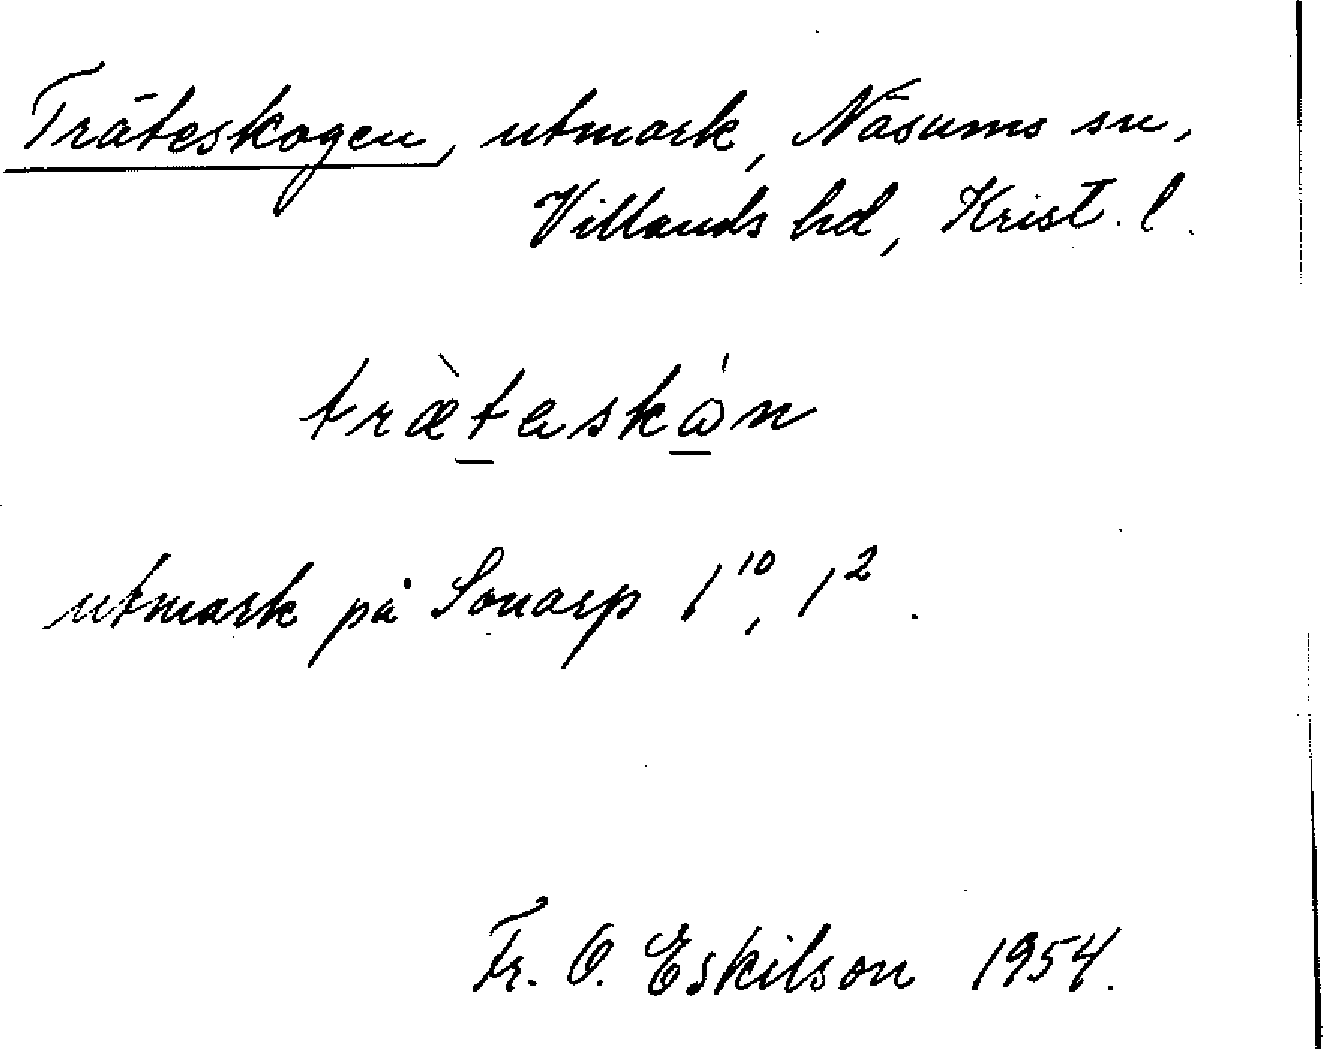 Träteskogen, utmark, Näsums sn,
Villands hd, Krist. l.
træ̀taskɷ́n
utmark på Sonarp 1¹⁰, 1².
Fr. O. Eskilson 1954.